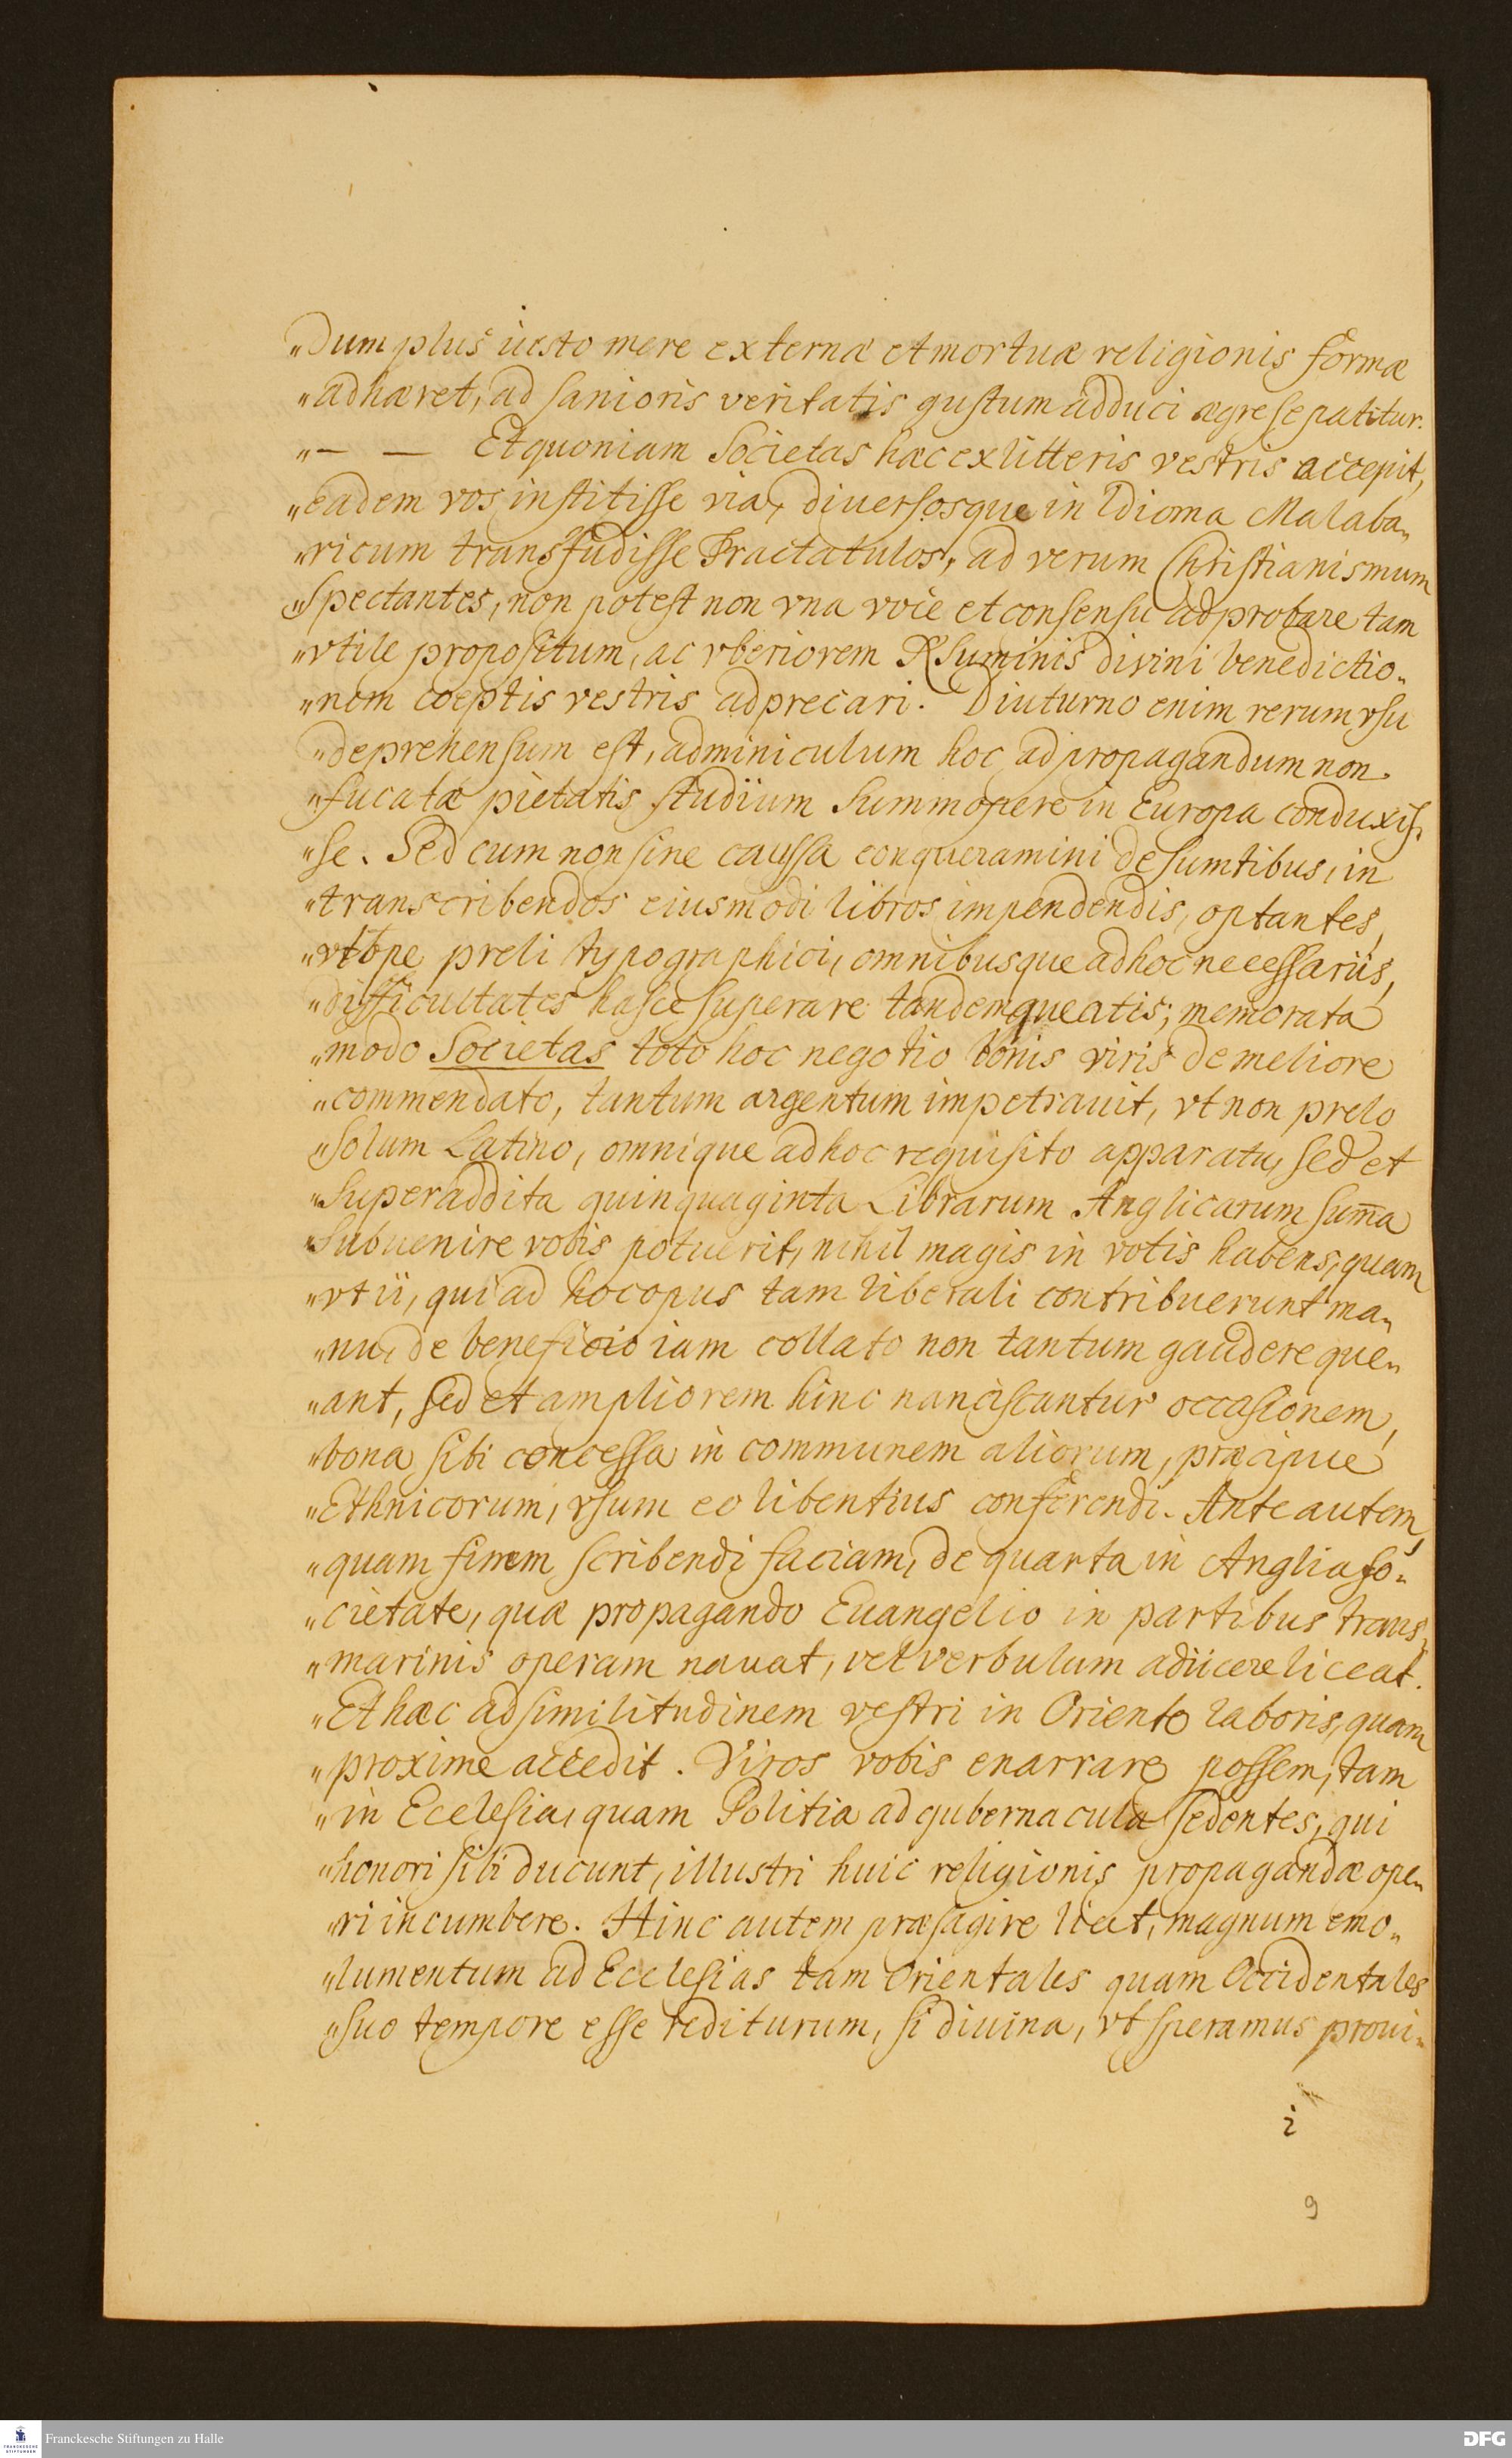 „Dum plus iusto mere externæ et mortuæ religionis formæ
„adhæret, ad sanioris veritatis gustum adduci ægre se patitur.
„— — Et quoniam Societas hæc ex litteris vestris accepit,
„eadem vos institisse via, diversosque in Idioma Malaba„
„ricum transfudisse Tractatulos, ad verum Christianismum
„spectantes, non potest non vna voce et consensu adprobare tam
„vtile propositum, ac vberiorem Numinis divini benedictio„
„nem cœptis vestris adprecari. Diuturno enim rerum vsu
„deprehensum est, adminiculum hoc ad propagandum non
„fucatæ pietatis studium summopere in Europa conduxis„
„se. Sed cum non sine caussa conqueramini de sumtibus, in
„transcribendos eiusmodi libros impendendis, optantes,
„vt ope preli typographici, omnibusque ad hoc necessariis,
„difficultates hasce superare tandem queatis; memorata
„modo Societas toto hoc negotio bonis viris de meliore
„commendato, tantum argentum impetrauit, vt non prelo
„solum Latino, omnique ad hoc requisito apparatu, sed et
„superaddita quinquaginta Librarum Anglicarum sum̄a
„subuenire vobis potuerit, nihil magis in votis habens, quam
„vt ii, qui ad hoc opus tam liberali contribuerunt ma„
„nu, de beneficio iam collato non tantum gaudere que„
„ant, sed et ampliorem hinc nanciscantur occasionem,
„bona sibi concessa in communem aliorum, præcipue
„Ethnicorum, vsum eo libentius conferendi. Ante autem,
„quam finem scribendi faciam, de quarta in Anglia so„
„cietate, quæ propagando Euangelio in partibus trans„
„marinis operam nauat, vel verbulum adiicere liceat.
„Et hæc ad similitudinem vestri in Oriente laboris, quam
„proxime accedit. Viros vobis enarrare possem, tam
„in Ecclesia, quam Politia ad gubernacula sedentes, qui
„honori sibi ducunt, illustri huic religionis propagandæ ope„
„ri incumbere. Hinc autem præsagire licet, magnum emo„
„lumentum ad Ecclesias tam Orientales quam Occidentales
„suo tempore esse rediturum, si diuina, vt speramus proui„
2
9
Franckesche Stiftungen zu Halle
DFG